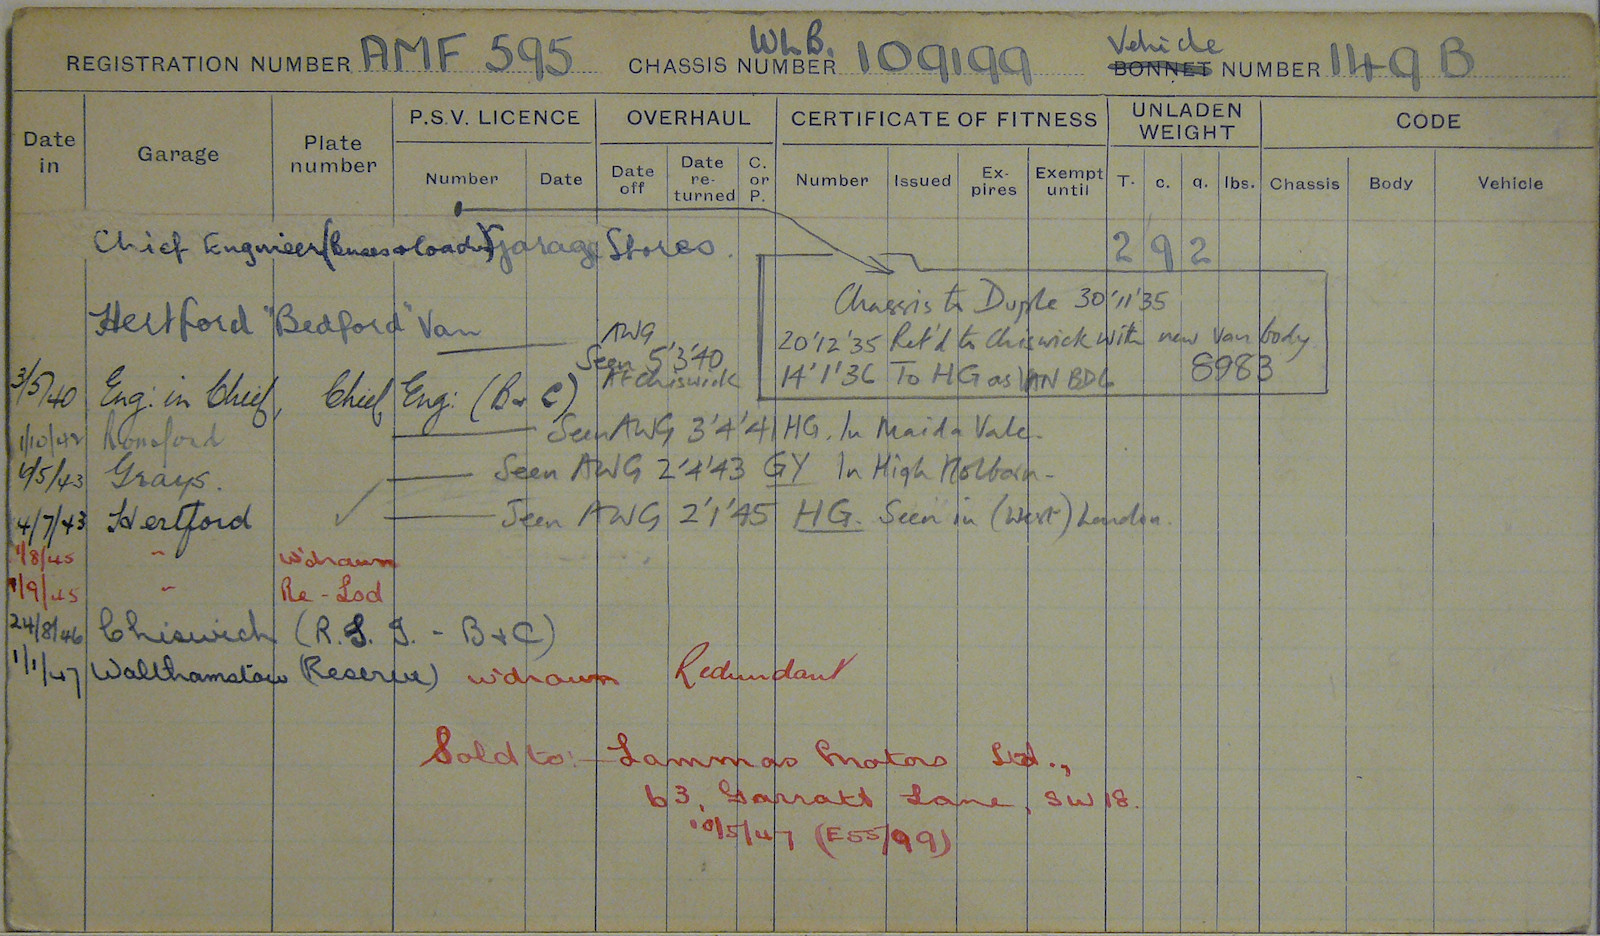 REGISTRATION NUMBER AMF 595 CHASSIS NUMBER WLB. 109199 Vehicle BONNET NUMBER 149 B
Date in Garage Plate number P.S.V. LICENCE OVERHAUL CERTIFICATE OF FITNESS UNLADEN WEIGHT CODE
Number Date Date off Date re-turned C. or P. Number Issued Ex-pires Exempt until T. c. q. lbs. Chassis Body Vehicle
Chief Engineer (Buses & Coaches) Garage Stores. 2 9 2
Chassis to Duple 30'11'35
Hertford "Bedford" Van
20'12'35 Ret'd to Chiswick with new van body
8983
14'1'36 To HG as VAN BDG
AWG
Seen 5'3'40
At Chiswick
3/5/40 Eng: in Chief, Chief Eng: (B & C)
1/10/42 Romford Seen AWG 3'4'41 HG. In Maida Vale.
/5/43 Grays. Seen AWG 2'4'43 GY In High Holborn -
4/7/43 Hertford ✓ Seen AWG 2'1'45 HG. Seen in (West) London.
1/8/45 " w'drawn
1/9/45 " Re-Lsd
24/8/46 Chiswick (R.S.J. - B & C)
1/1/47 Walthamstow (Reserve) w'drawn Redundant
Sold to:- Lammas Motors Ltd.,
63, Garratt Lane, SW 18.
10/5/47 (E55/99)